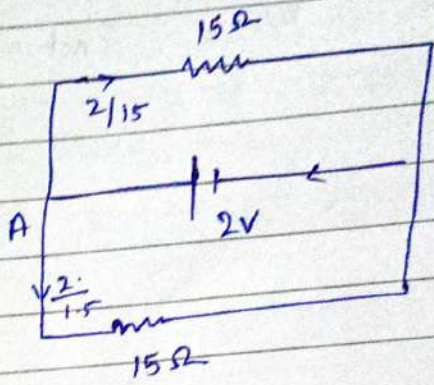 15Ω
2/15
A
2V
2
15
15Ω